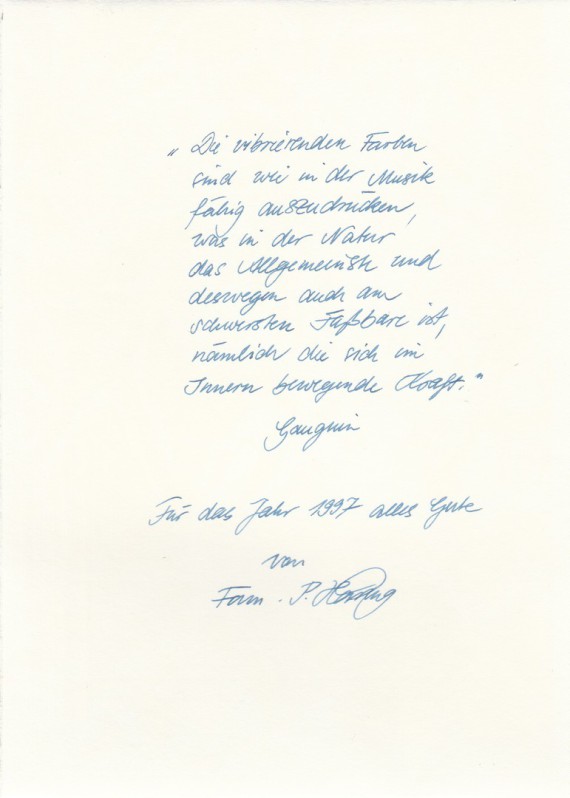 „Die vibrierenden Farben
sind wie in der Musik
fähig auszudrücken,
was in der Natur
das Allgemeinste und
deswegen auch am
schwersten Faßbare ist,
nämlich die sich im
Innern bewegende Kraft."
Gauguin
Für das Jahr 1997 alles Gute
von
Fam. P.